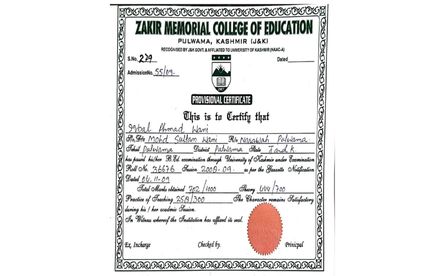 ZAKIR MEMORIAL COLLEGE OF EDUCATION
PULWAMA, KASHMIR (J&K)
RECOGNISED BY J&K GOVT. & AFFILIATED TO UNIVERSITY OF KASHMIR (NAAC-A)
S.No. 239 Dated
Admission No. 55/09
PROVISIONAL CERTIFICATE
This is to Certify that
Iqbal Ahmad Wani
S/o, D/o Mohd Sultan Wani R/o Pulwama
Tehsil Pulwama District Pulwama State J and K
has passed his/her B.Ed. examination through University of Kashmir under Examination
Roll No. 36676 Session 2008-09 as per the Gazette Notification
Dated 06.11.09
Total Marks obtained 702/1100 Theory 444/700
Practice of Teaching 258/300 The Character remains Satisfactory
during his / her academic Session.
In Witness whereof the Institution has affixed its seal.
Ex. Incharge Checked by. Principal